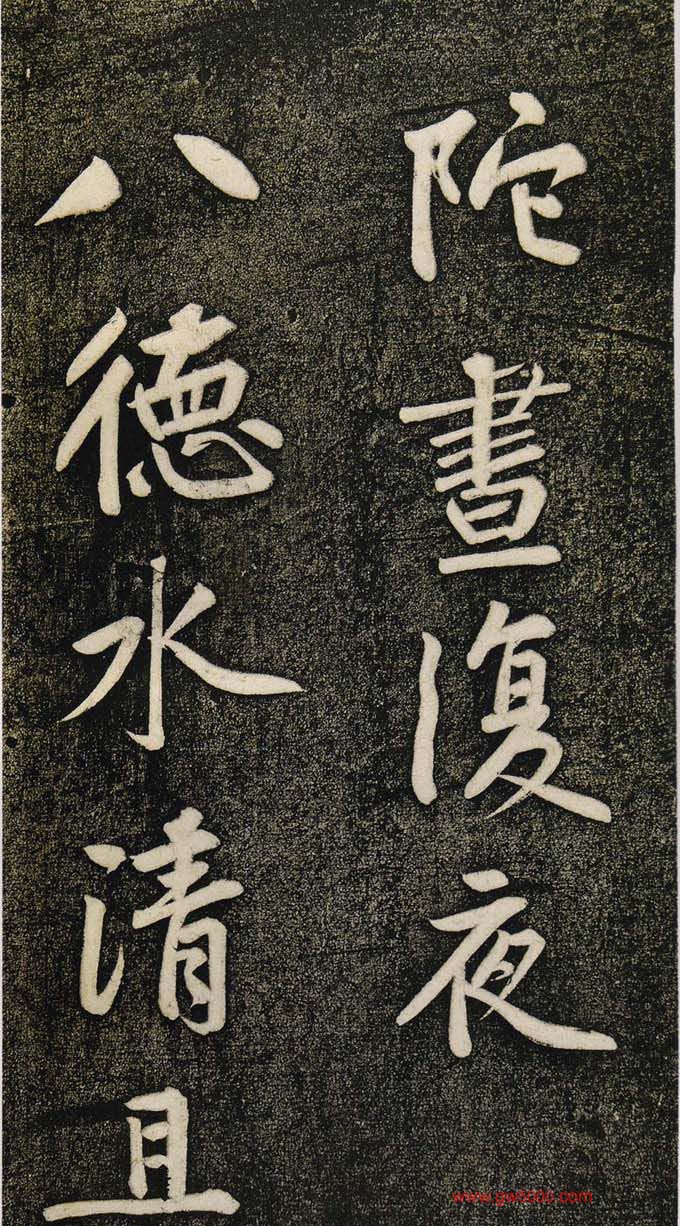 陀晝復夜
八德水清且
www.gw8000.com